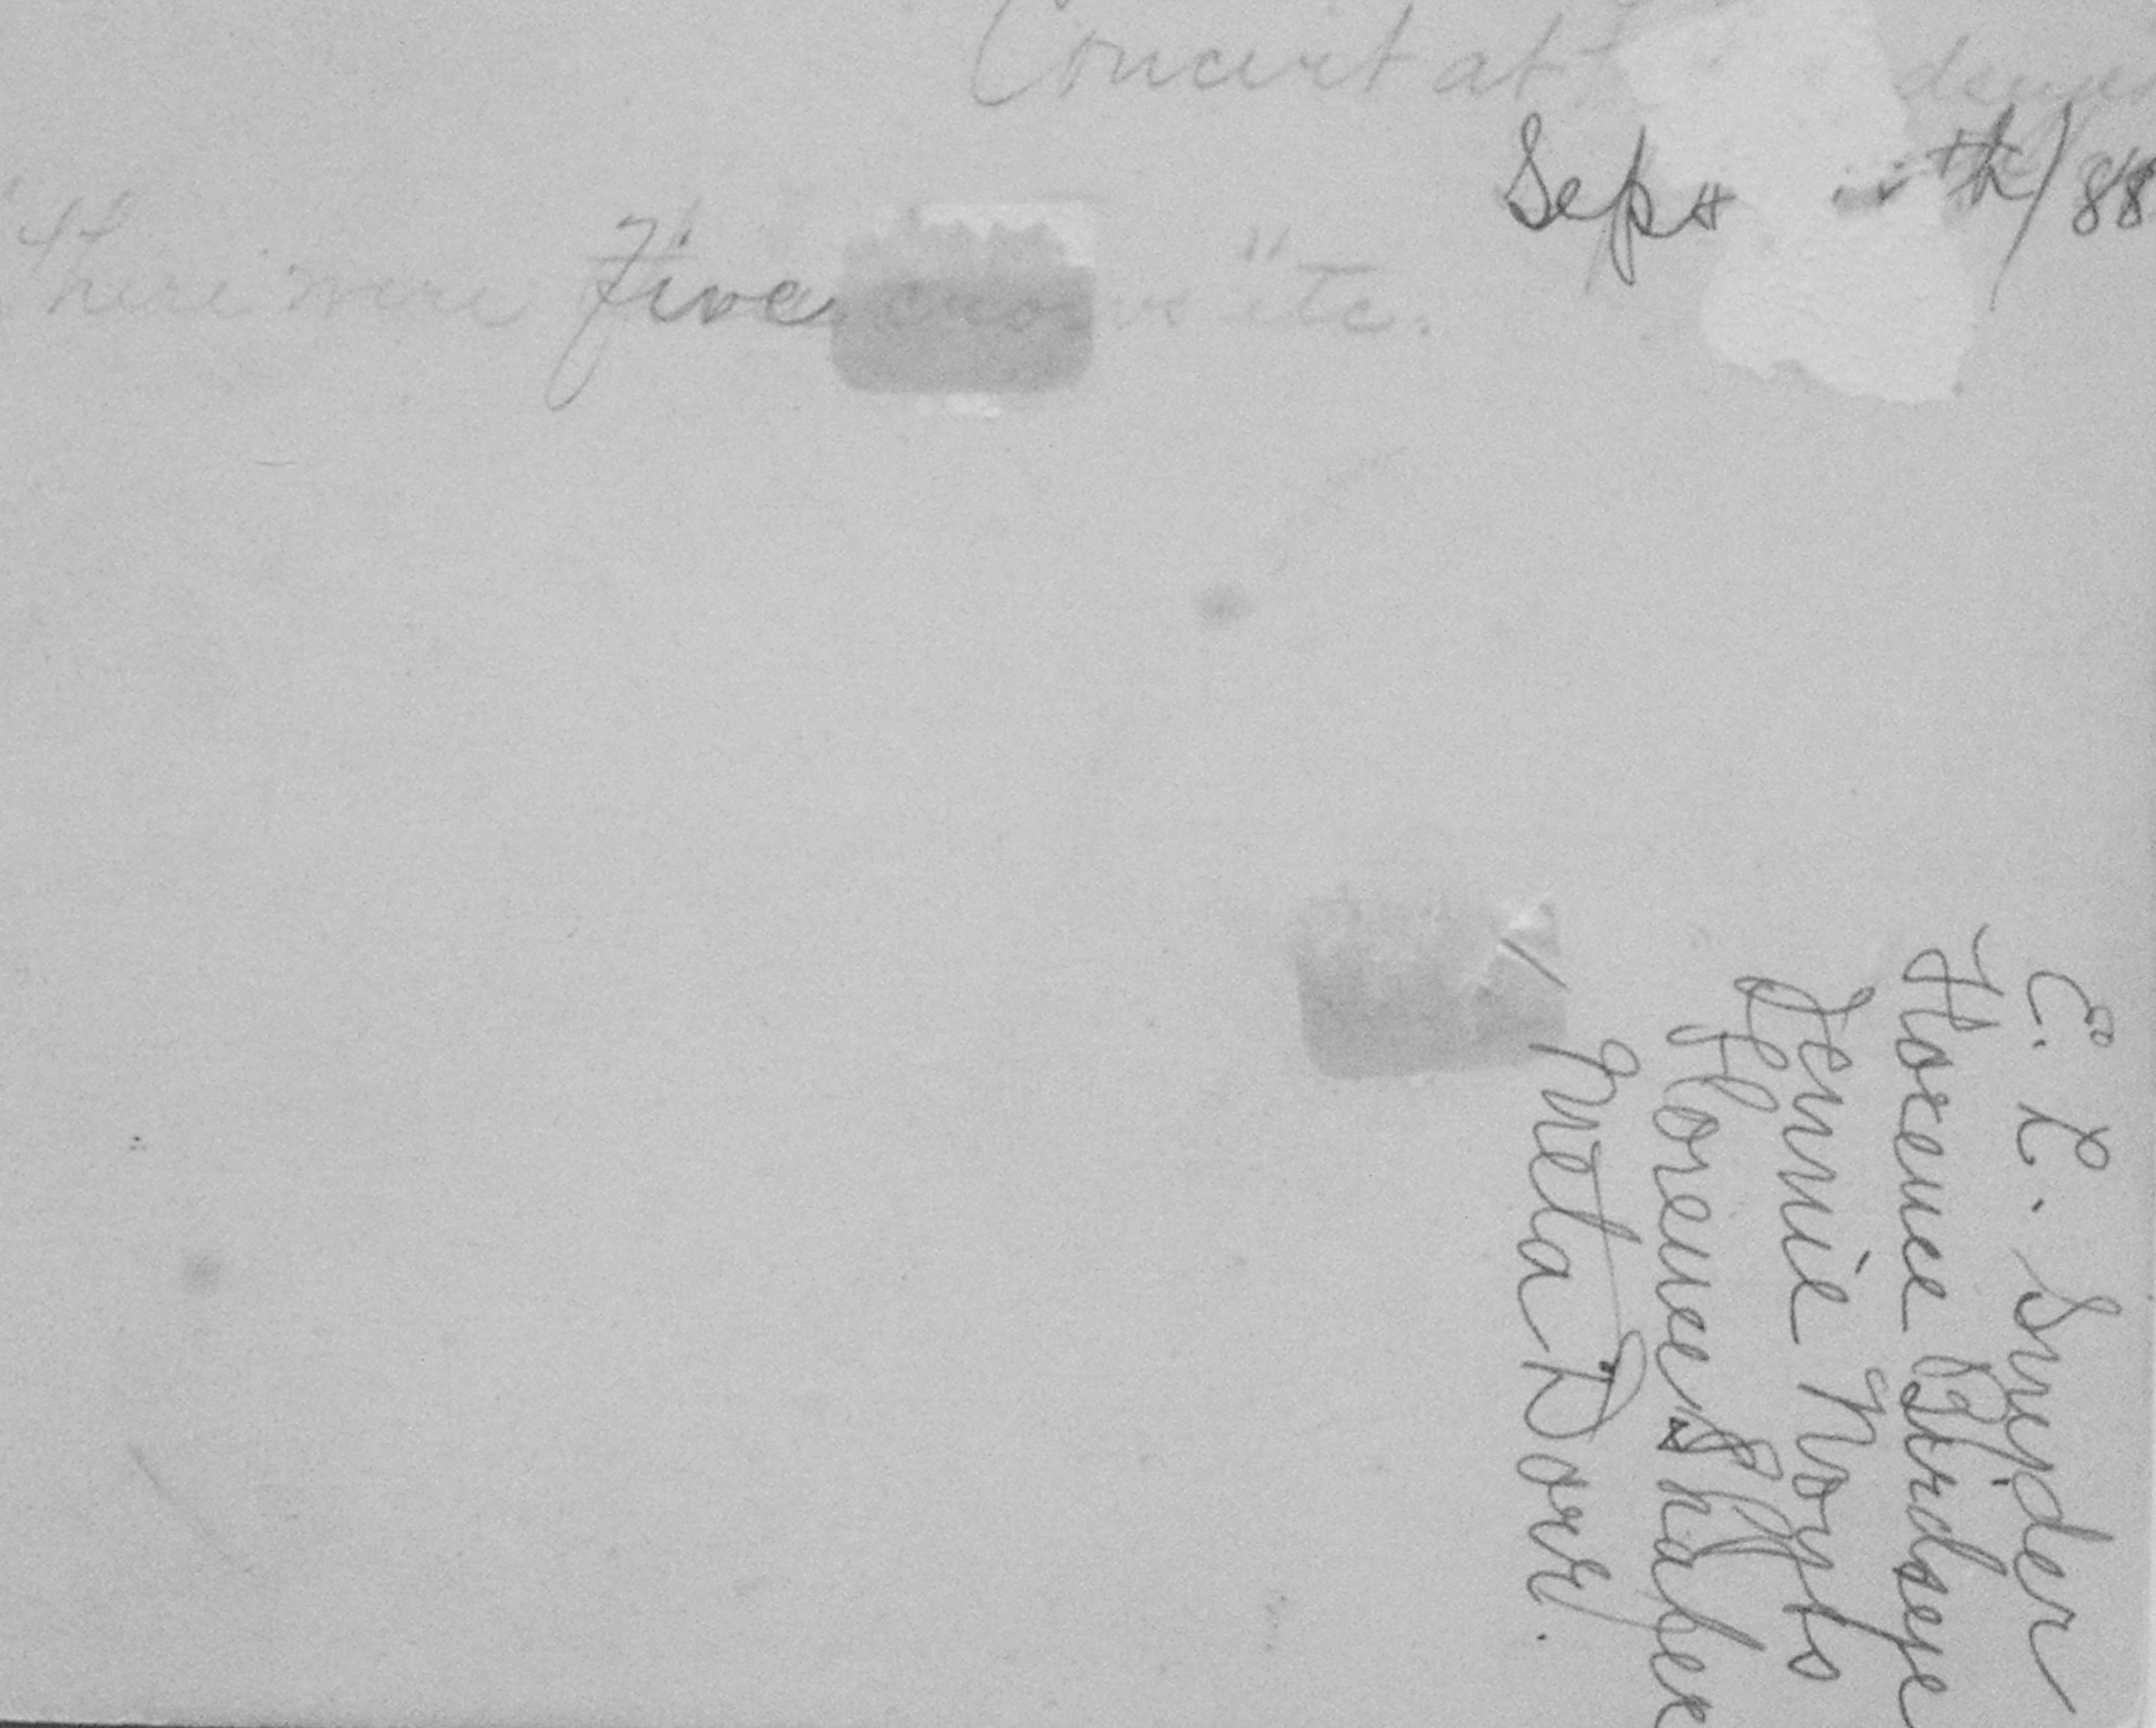 Concert at
Sept th/88
"There were Five crows" etc.
E. L. Snyder
Florence Birdseye
Jennie Noyes
Florence Shaber
Meta Dorr.